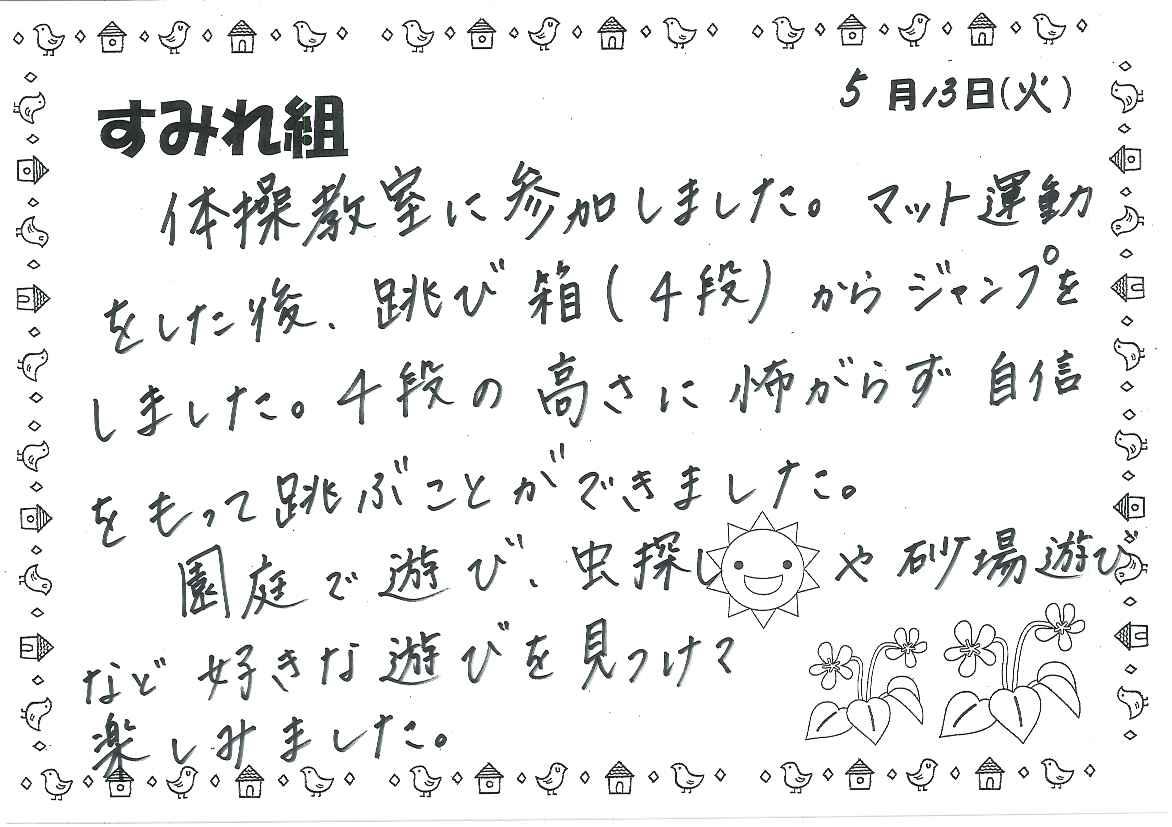 5月13日(火)
すみれ組
体操教室に参加しました。マット運動
をした後、跳び箱(4段)からジャンプを
しました。4段の高さに怖がらず自信
をもって跳ぶことができました。
園庭で遊び、虫探しや砂場遊び
など好きな遊びを見つけて
楽しみました。